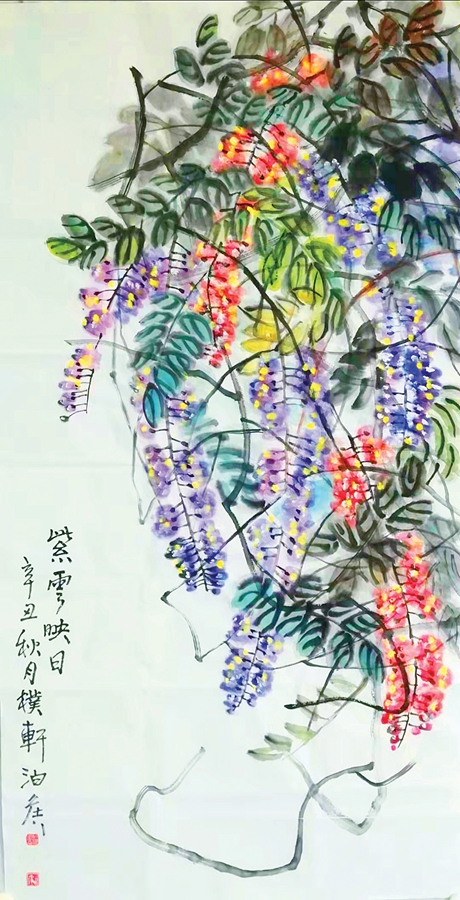 紫雲映日
辛丑秋月樸軒泊